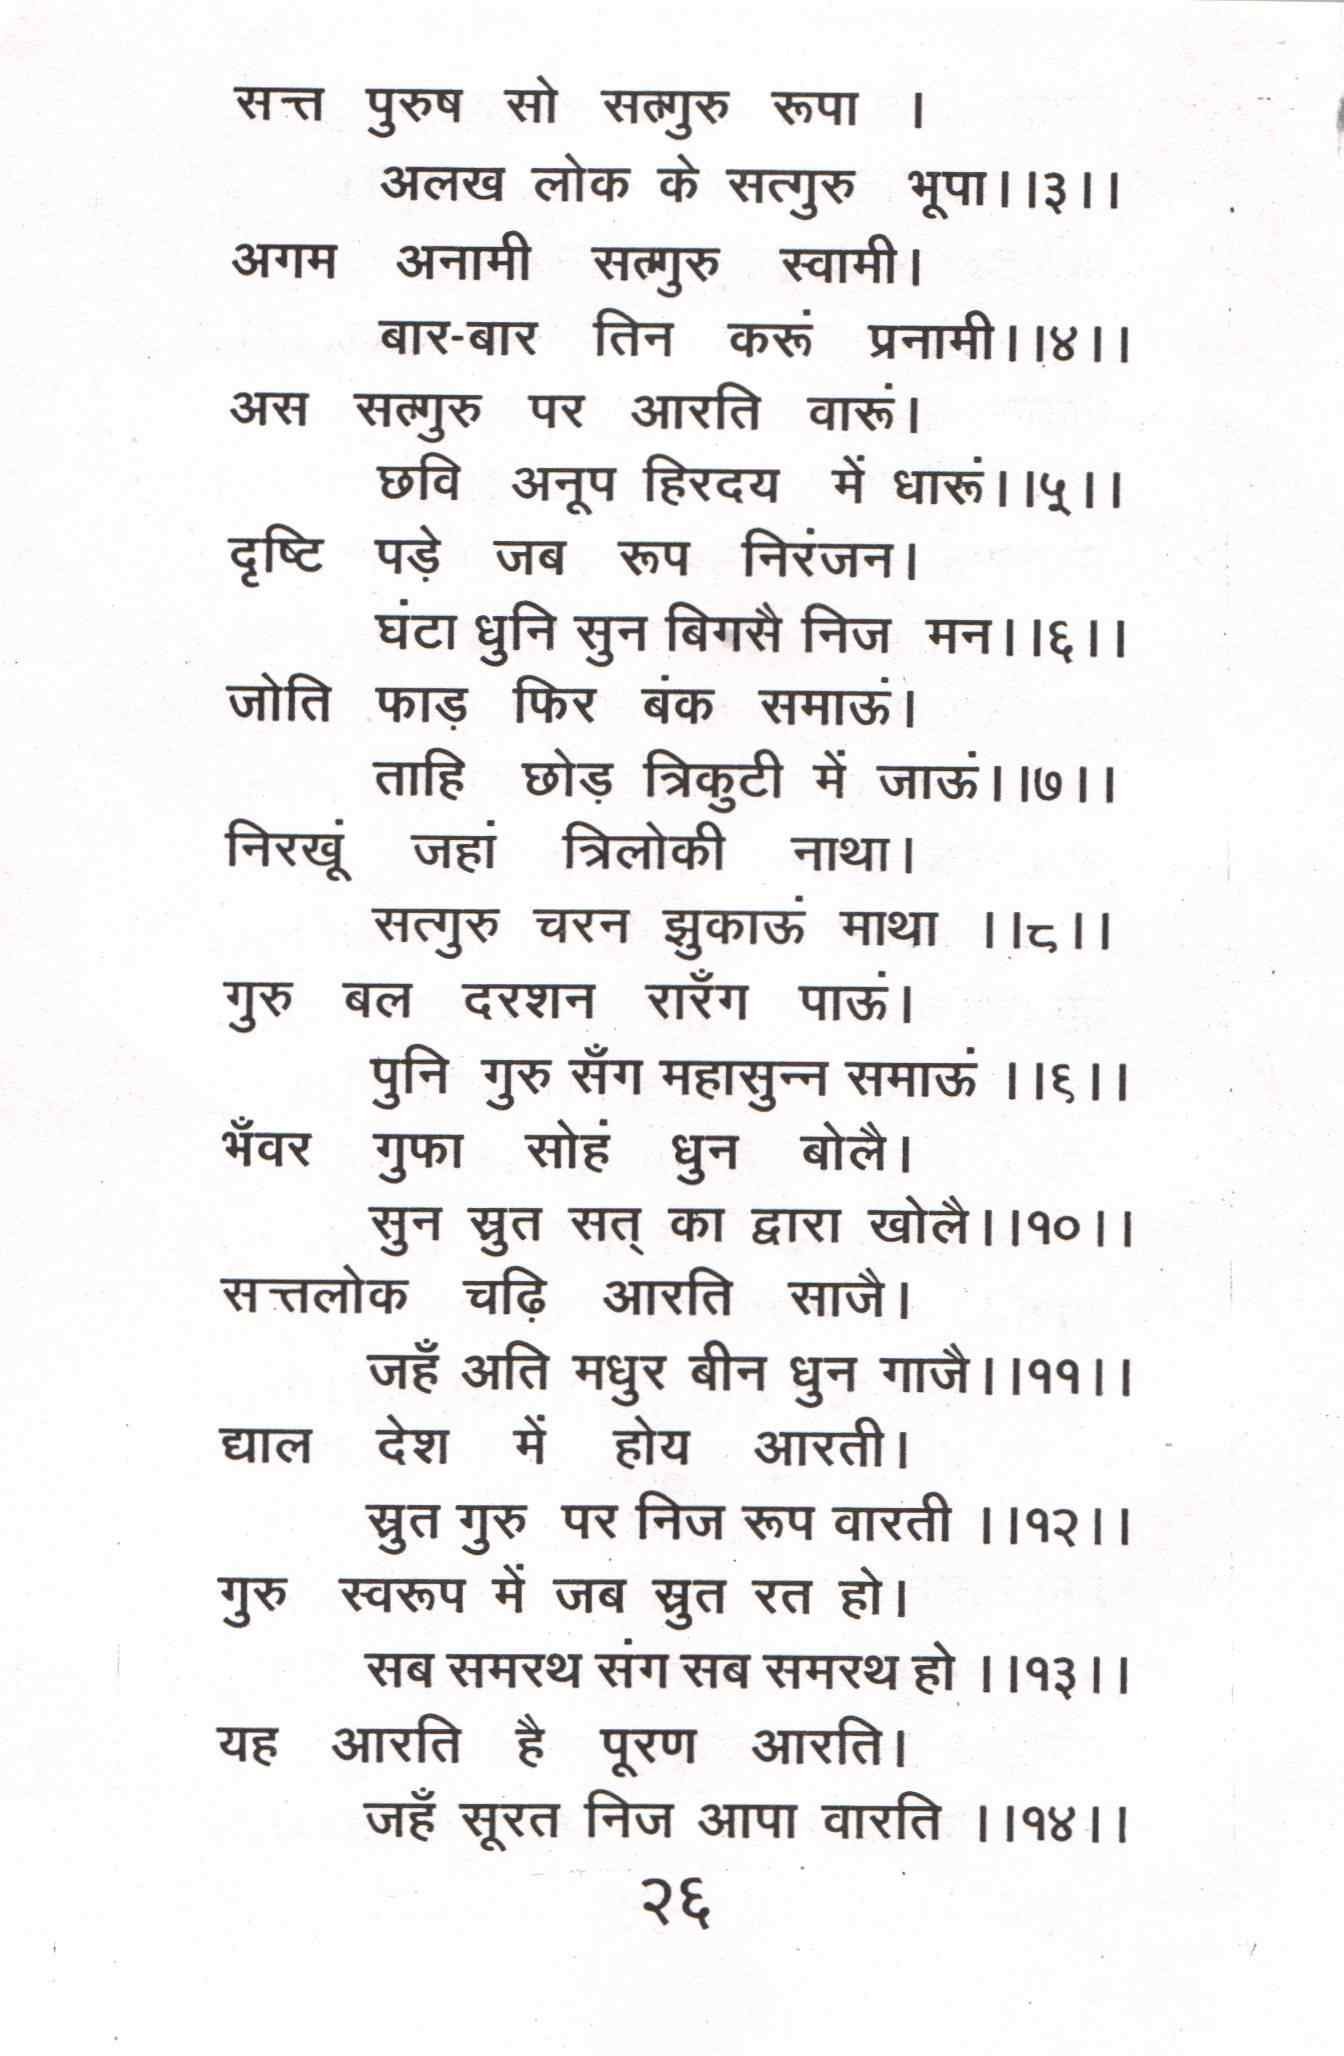 सत्त पुरुष सो सत्गुरु रूपा ।
अलख लोक के सत्गुरु भूपा।।३।।
अगम अनामी सत्गुरु स्वामी।
बार-बार तिन करूं प्रनामी।।४।।
अस सत्गुरु पर आरति वारूं।
छवि अनूप हिरदय में धारूं।।५।।
दृष्टि पड़े जब रूप निरंजन।
घंटा धुनि सुन बिगसै निज मन।।६।।
जोति फाड़ फिर बंक समाऊं।
ताहि छोड़ त्रिकुटी में जाऊं।।७।।
निरखूं जहां त्रिलोकी नाथा।
सत्गुरु चरन झुकाऊं माथा ।।८।।
गुरु बल दरशन रारँग पाऊं।
पुनि गुरु सँग महासुन्न समाऊं ।।९।।
भँवर गुफा सोहं धुन बोलै।
सुन स्रुत सत् का द्वारा खोलै।।१०।।
सत्तलोक चढ़ि आरति साजै।
जहँ अति मधुर बीन धुन गाजै।।११।।
द्याल देश में होय आरती।
स्रुत गुरु पर निज रूप वारती ।।१२।।
गुरु स्वरूप में जब स्रुत रत हो।
सब समरथ संग सब समरथ हो ।।१३।।
यह आरति है पूरण आरति।
जहँ सूरत निज आपा वारति ।।१४।।
२६